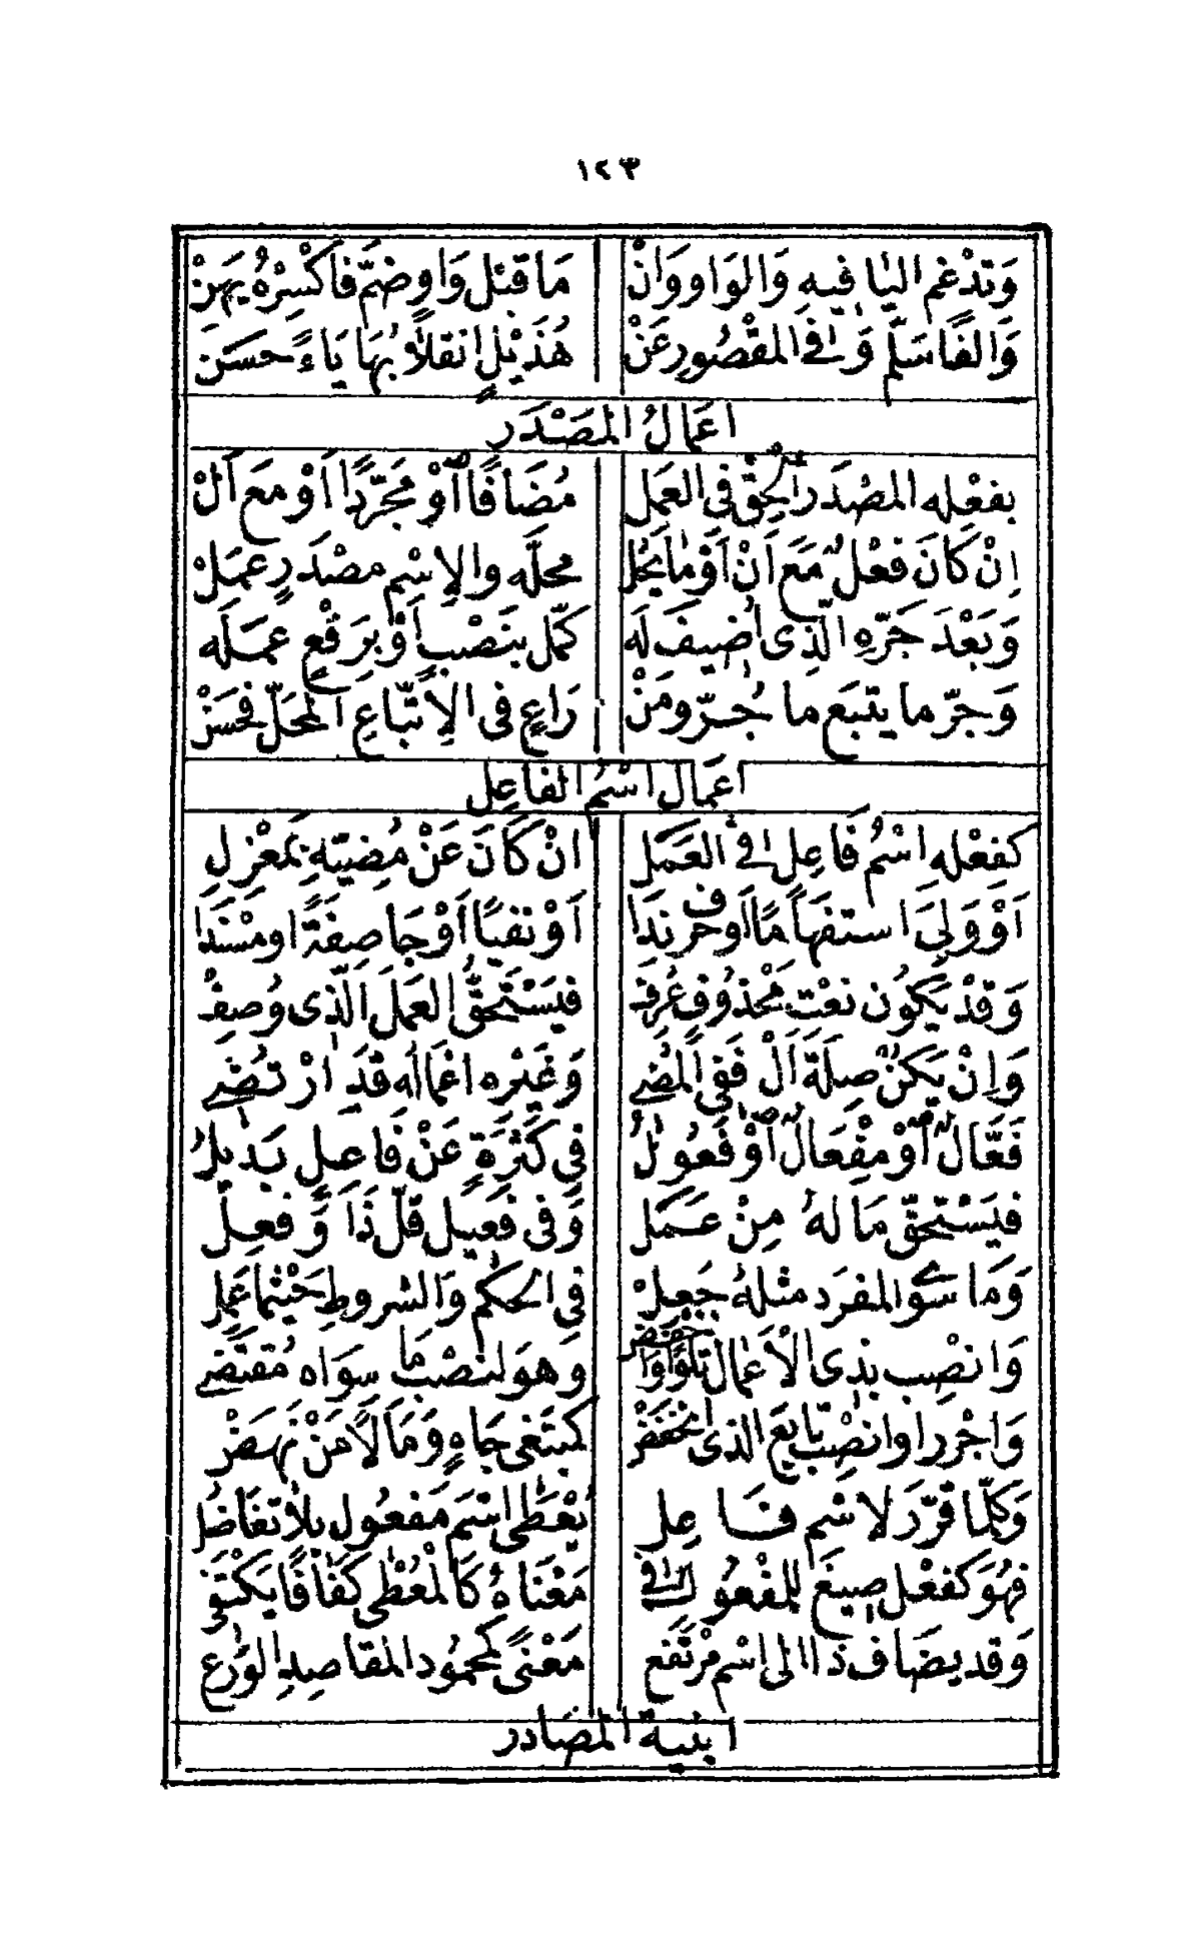 ١٢٣
وَتُدْغَم اليَا فِيهِ وَالوَاو وَانْ مَا قَبْل وَاوٍ ضُمَّ فَاكْسِرْهُ يَهُنْ
وَالِفًا سَلِّم وَفِي المَقْصُورِ عَنْ هُذَيْلٍ انقلابُهَا يَاءً حَسَن
اعمَالُ المَصْدَر
بفعْلِه المصْدَرَ أَلْحِقْ فِي العَمَل مُضَافًا أوْ مُجَرَّدًا أوْ مَعَ أَلْ
اِنْ كَانَ فعْلٌ مَعَ أَنْ أَوْ مَا يَحُل مَحلَّه وِالِاسْمِ مصْدَرٍ عَمَلْ
وَبَعْدَ جَرِّهِ الَّذِى أُضِيفَ لَه كَمِّل بنَصْبٍ أَوْ بِرَفْعٍ عمَلَه
وَجُرَّ ما يتبَع ما جُرَّ ومَنْ رَاعى فى الِاتِّبَاعِ المَحَلَّ فحَسَنْ
اعمَال اسْمِ الفَاعِل
كفعْلِه اسْمُ فَاعِلٍ فِي العَمَل انْ كَانَ عَنْ مُضِيِّهِ بِمَعْزِلِ
أَوْ وَلِيَ استفهَامًا أَو حرف نِدَا أَوْ نفيًا أَوْ جَا صِفَةً او مُسْنَدَا
وَقدْ يَكُون نعْتَ مَحْذُوفٍ عُرِف فيَسْتَحِقُّ العَمَلَ الَّذِى وُصِفْ
وَاِنْ يَكُنْ صِلَةَ أَلْ فَفِي المُضِي وَغَيْرِه اعْمَالُه قَدِ ارْتُضِي
فَعَّالٌ أَوْ مِفْعَالٌ أَوْ فَعُولُ فِي كَثْرَةٍ عَنْ فَاعِلٍ بَدِيلُ
فيَسْتَحِقّ مَا لَهُ مِنْ عَمَل وَفى فَعِيلٍ قَلَّ ذَا وَفعِل
وَمَا سِوَى المفرَد مثلَهُ جُعِلْ فِي الحُكْمِ وَالشروطِ حَيْثُمَا عَمِل
وَانْصِب بذِى الْاَعمَالِ تِلْوًا وَاخفض وهوَ لِنصْبِ مَا سِوَاه مُقتَضِي
وَاجْرُر اوانْصِب تَابِعَ الذى انْخَفَضْ كَمُبْتَغِي جَاهٍ وَمَالًا مَنْ نَهَضْ
وَكُلُّ مَا قُرِّرَ لاسْمِ فَاعِل يُعْطَى اسْمَ مَفعُولٍ بِلا تَفَاضُل
فهُوَ كفعْلٍ صِيغَ لِلْمَفْعُول فِي مَعْنَاهُ كَالْمُعْطَى كَفَافًا يَكْتَفِي
وَقد يُضَاف ذَا الى اسْمٍ مرْتَفع مَعْنًى كَمَحْمُود المَقَاصِدِ الوَرِع
ابنية المَصَادر